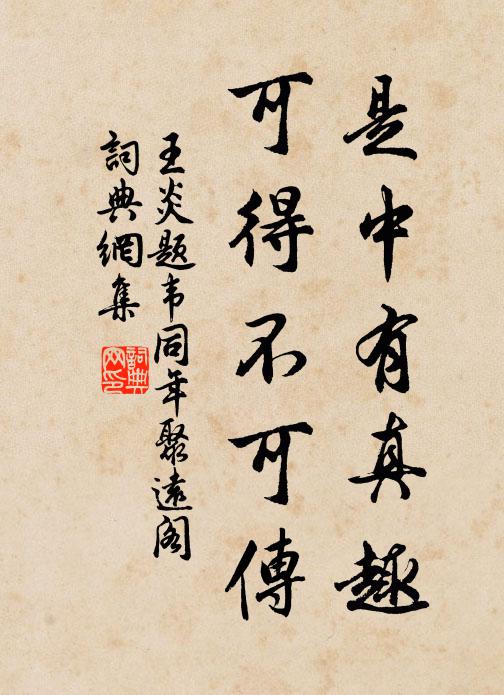 是中有真趣
可得不可傳
王炎題韦同年聚遠阁
詞典網集
詞典网印